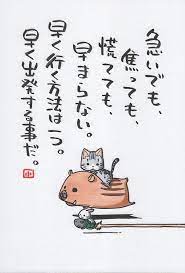 急いでも、
焦っても、
慌てても、
早まらない。
早く行く方法は一つ。
早く出発する事だ。